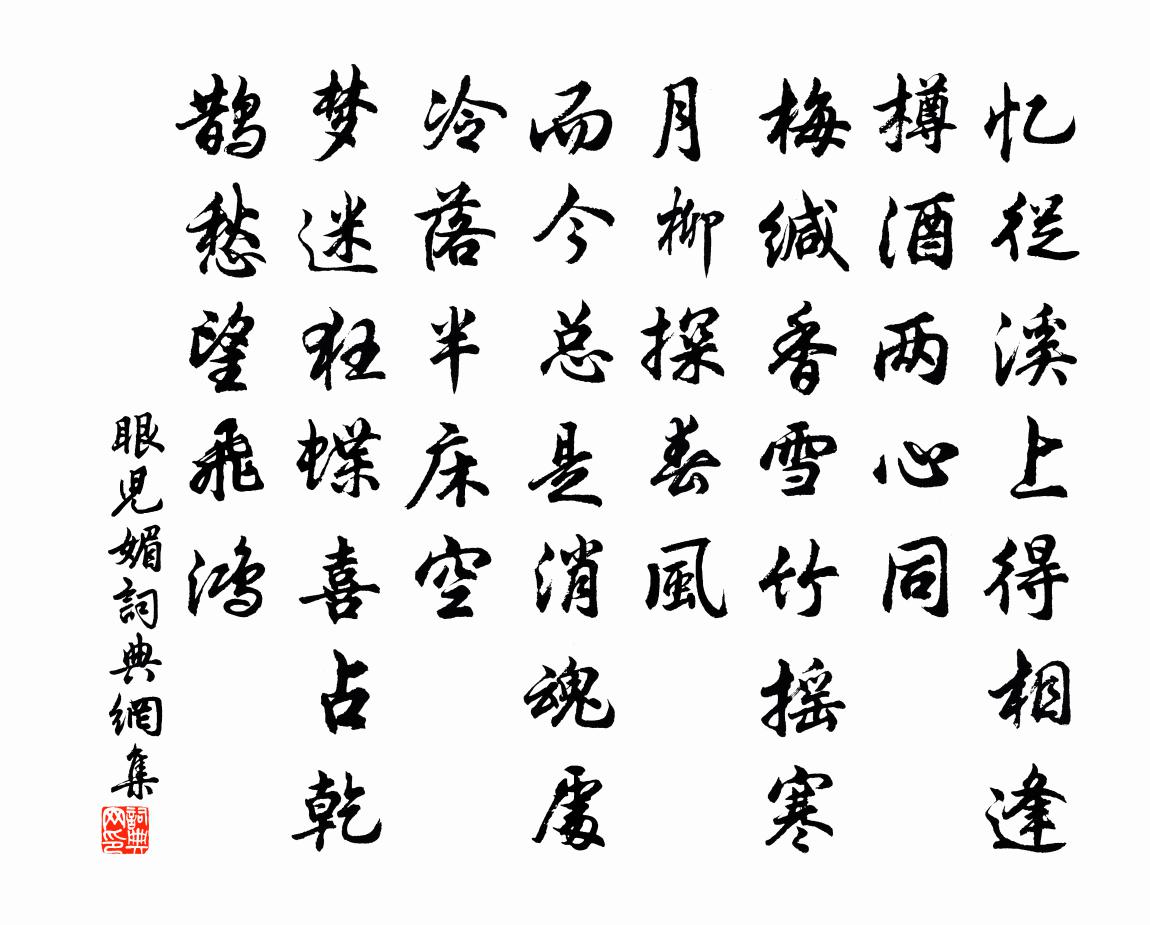 忆从溪上得相逢
樽酒两心同
梅缄香雪竹摇寒
月柳探春風
而今总是消魂處
冷落半床空
梦迷狂蝶喜占乾
鹊愁望飛鸿
眼児媚詞典網集
詞典网印